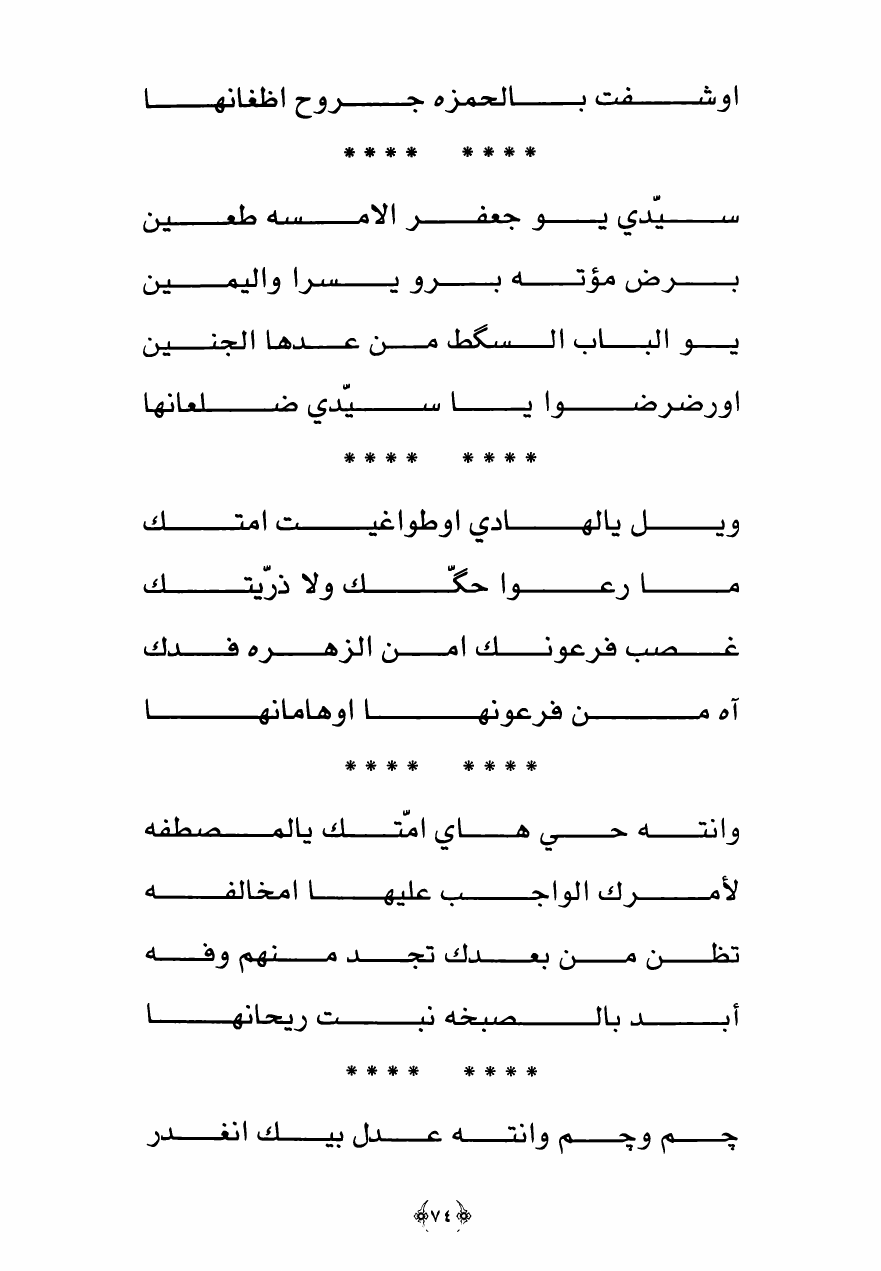 اوشفت بالحمزه جروح اظغانها
**** ****
سيّدي يو جعفر الامسه طعين
برض مؤته برو يسرا واليمين
يو الباب السگط من عدها الجنين
اورضرضوا يا سيّدي ضلعانها
**** ****
ويل يالهادي اوطواغيت امتك
ما رعوا حگّك ولا ذرّيتك
غصب فرعونك امن الزهره فدك
آه من فرعونها اوهامانها
**** ****
وانته حي هاي امّتك يالمصطفه
لأمرك الواجب عليها امخالفه
تظن من بعدك تجد منهم وفه
أبد بالصبخه نبت ريحانها
**** ****
چم وچم وانته عدل بيك انغدر
﴿٧٤﴾